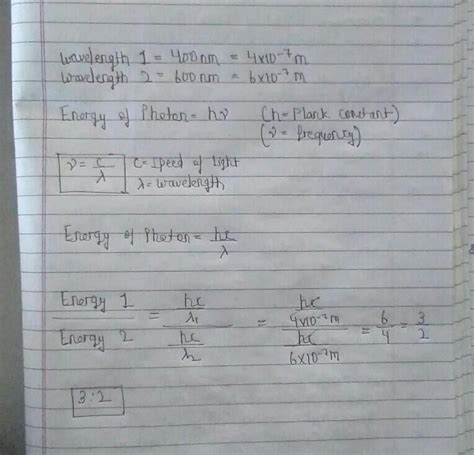 wavelength 1 = 400nm = 4x10⁻⁷m
wavelength 2 = 600nm = 6x10⁻⁷m
Energy of Photon = hν (h = Plank constant)
(ν = frequency)
ν = c/λ C = Speed of light
λ = wavelength
Energy of Photon = hc/λ
Energy 1 / Energy 2 = (hc/λ₁) / (hc/λ₂) = (hc/4x10⁻⁷m) / (hc/6x10⁻⁷m) = 6/4 = 3/2
3:2